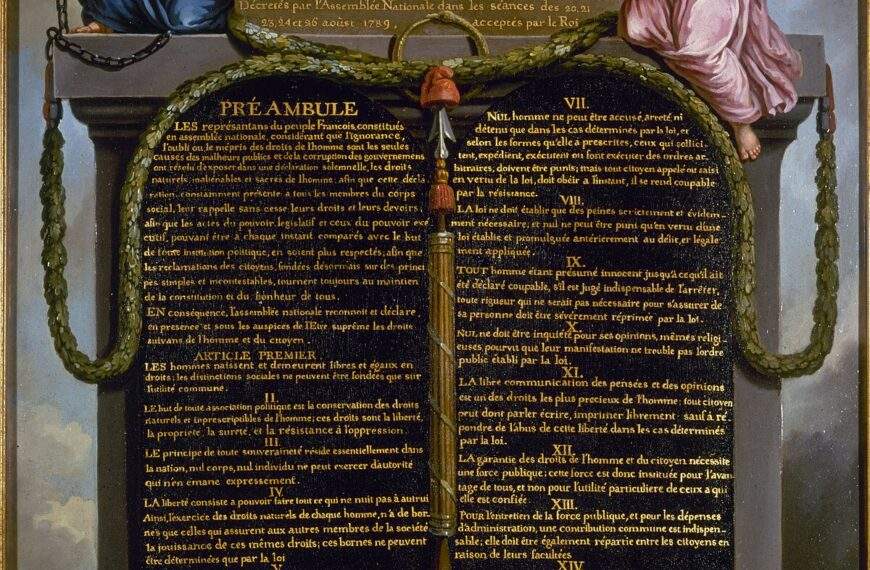 Décretés par l'Assemblée Nationale dans les séances des 20, 21
23, 24 et 26 août 1789, acceptés par le Roi
PRÉAMBULE
LES représantans du peuple Francois, constitués
en assemblée nationale, considérant que l'ignorance,
l'oubli ou le mépris des droits de l'homme sont les seules
causes des malheurs publics et de la corruption des gouvernemens
ont résolu d'exposer dans une déclaration solemnelle, les droits
naturels, inaliénables et sacrés de l'homme: afin que cette décla
ration, constamment présente à tous les membres du corps
social, leur rappelle sans cesse leurs droits et leurs devoirs;
afin que les actes du pouvoir législatif et ceux du pouvoir exé
cutif, pouvant être à chaque instant comparés avec le but
de toute institution politique, en soient plus respectés; afin que
les réclamations des citoyens, fondées désormais sur des princi
pes simples et incontestables, tournent toujours au maintien
de la constitution et du bonheur de tous.
EN conséquence, l'assemblée nationale reconnoît et déclare
en présence et sous les auspices de l'Etre suprême les droits
suivans de l'homme et du citoyen.
ARTICLE PREMIER.
LES hommes naissent et demeurent libres et égaux en
droits; les distinctions sociales ne peuvent être fondées que sur
l'utilité commune.
II.
LE but de toute association politique est la conservation des droits
naturels et imprescriptibles de l'homme; ces droits sont la liberté,
la propriété, la sureté, et la résistance à l'oppression.
III.
LE principe de toute souveraineté réside essentiellement dans
la nation, nul corps, nul individu ne peut exercer d'autorité
qui n'en émane expressement.
IV.
LA liberté consiste a pouvoir faire tout ce qui ne nuit pas à autrui
Ainsi, l'exercice des droits naturels de chaque homme, n'a de bor-
nes que celles qui assurent aux autres membres de la société
la jouissance de ces mêmes droits; ces bornes ne peuvent
être déterminées que par la loi
V.
VII.
NUL homme ne peut être accusé, arreté, ni
détenu que dans les cas déterminés par la loi, et
selon les formes qu'elle à prescrites, ceux qui sollici-
tent, expédient, exécutent ou font exécuter des ordres ar-
bitraires, doivent être punis; mais tout citoyen appelé ou saisi
en vertu de la loi, doit obéir a l'instant, il se rend coupable
par la résistance.
VIII.
LA loi ne doit établir que des peines strictement et évidem-
ment nécessaire, et nul ne peut être puni qu'en vertu d'une
loi établie et promulguée antérierement au délit, et légale-
ment appliquée.
IX.
TOUT homme étant présumé innocent jusqu'a ce qu'il ait
été déclaré coupable, s'il est jugé indispensable de l'arrêter,
toute rigueur qui ne serait pas nécessaire pour s'assurer de
sa personne doit être sévèrement réprimée par la loi.
X.
NUL ne doit être inquiété pour ses opinions, mêmes religi-
euses pourvu que leur manifestation ne trouble pas l'ordre
public établi par la loi.
XI.
LA libre communication des pensées et des opinions
est un des droits les plus precieux de l'homme; tout citoyen
peut donc parler écrire, imprimer librement: sauf à ré
pondre de l'abus de cette liberté dans les cas déterminés
par la loi.
XII.
LA garantie des droits de l'homme et du citoyen nécessite
une force publique; cette force est donc instituée pour l'avan-
tage de tous, et non pour l'utilité particuliere de ceux a qui
elle est confiée.
XIII.
POUR l'entretien de la force publique, et pour les dépenses
d'administration, une contribution commune est indispen-
sable; elle doit être également répartie entre les citoyens en
raison de leurs facultées
XIV.